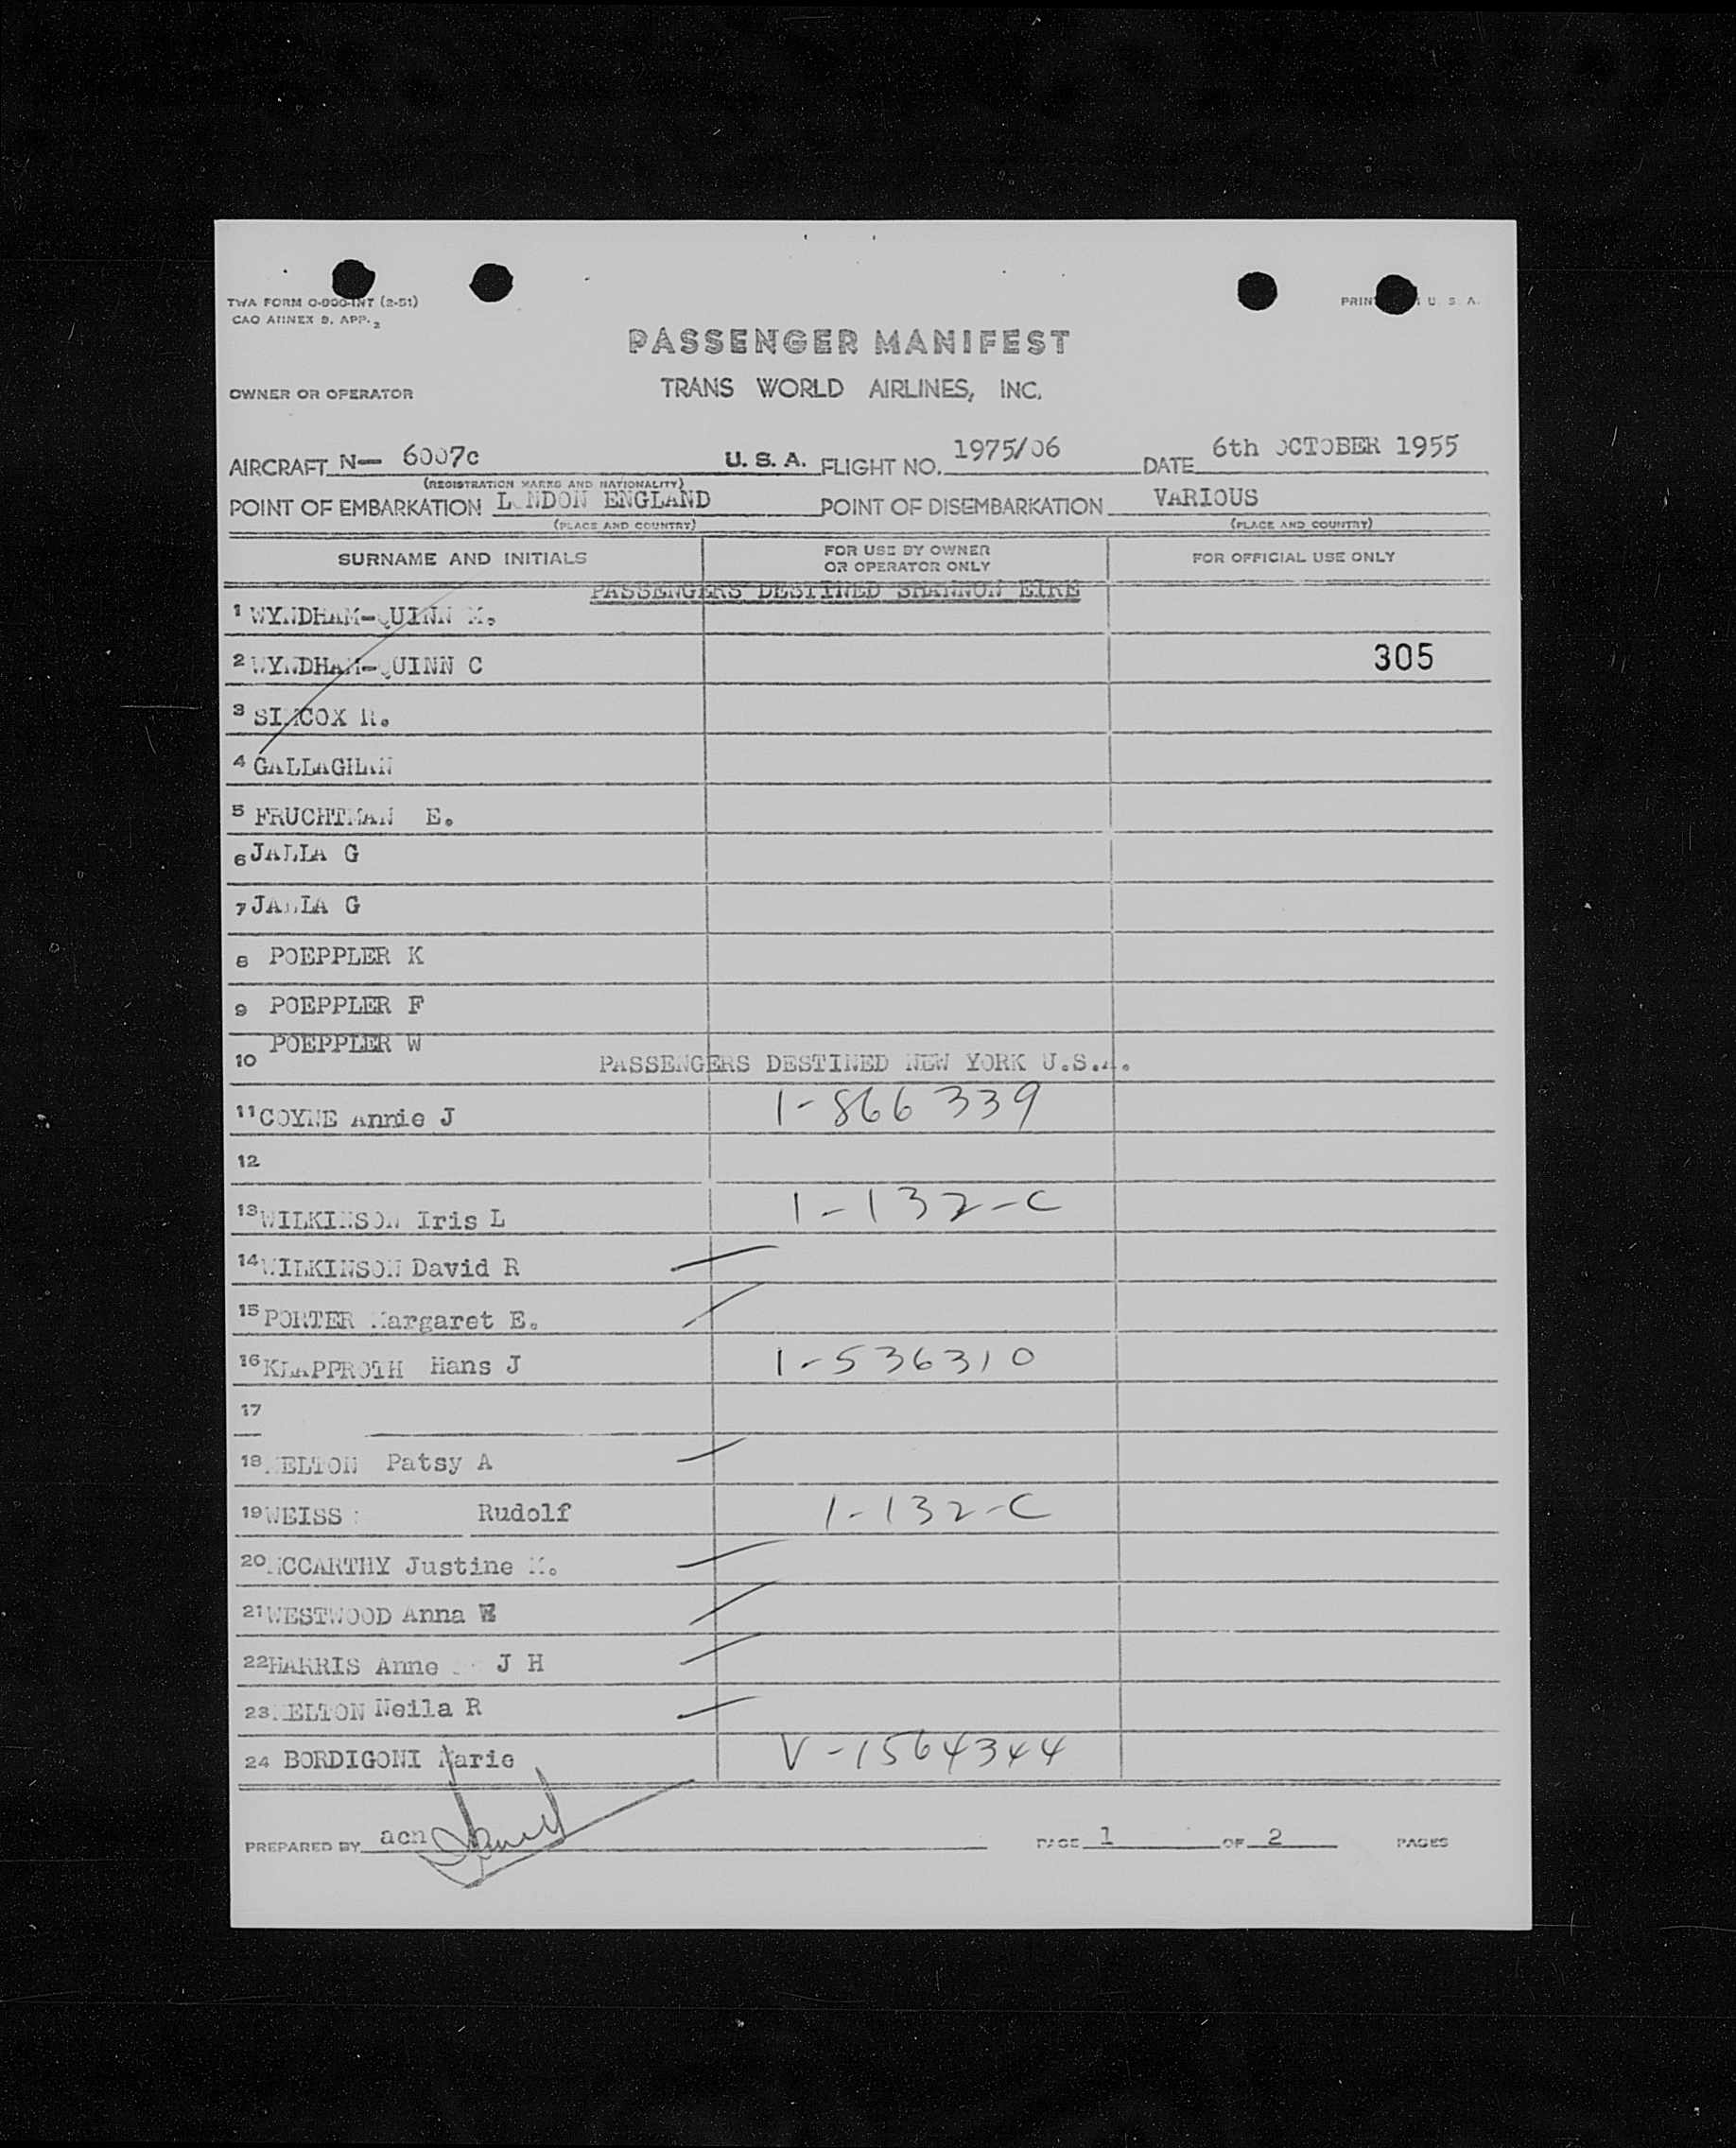 TWA FORM O-900-INT (2-51)
CAO ANNEX 9, APP. 2
U. S. A.
PASSENGER MANIFEST
OWNER OR OPERATOR TRANS WORLD AIRLINES, INC.
AIRCRAFT N— 6007c U. S. A. FLIGHT NO. 1975/06 DATE 6th OCTOBER 1955
(REGISTRATION MARKS AND NATIONALITY)
POINT OF EMBARKATION LONDON ENGLAND POINT OF DISEMBARKATION VARIOUS
(PLACE AND COUNTRY) (PLACE AND COUNTRY)
SURNAME AND INITIALS FOR USE BY OWNER OR OPERATOR ONLY FOR OFFICIAL USE ONLY
PASSENGERS DESTINED SHANNON EIRE
1 WYNDHAM-QUINN M.
2 WYNDHAM-QUINN C 305
3 SIMCOX R.
4 GALLAGHAN
5 FRUCHTMAN E.
6 JALLA G
7 JALLA G
8 POEPPLER K
9 POEPPLER F
10 POEPPLER W
PASSENGERS DESTINED NEW YORK U.S.A.
11 COYNE Annie J 1-866339
12
13 WILKINSON Iris L 1-132-C
14 WILKINSON David R
15 PORTER Margaret E.
16 KLAPPROTH Hans J 1-536310
17
18 MELTON Patsy A
19 WEISS Rudolf 1-132-C
20 MCCARTHY Justine M.
21 WESTWOOD Anna W
22 HARRIS Anne J H
23 MELTON Neila R
24 BORDIGONI Marie V-1564344
PREPARED BY acn PAGE 1 OF 2 PAGES